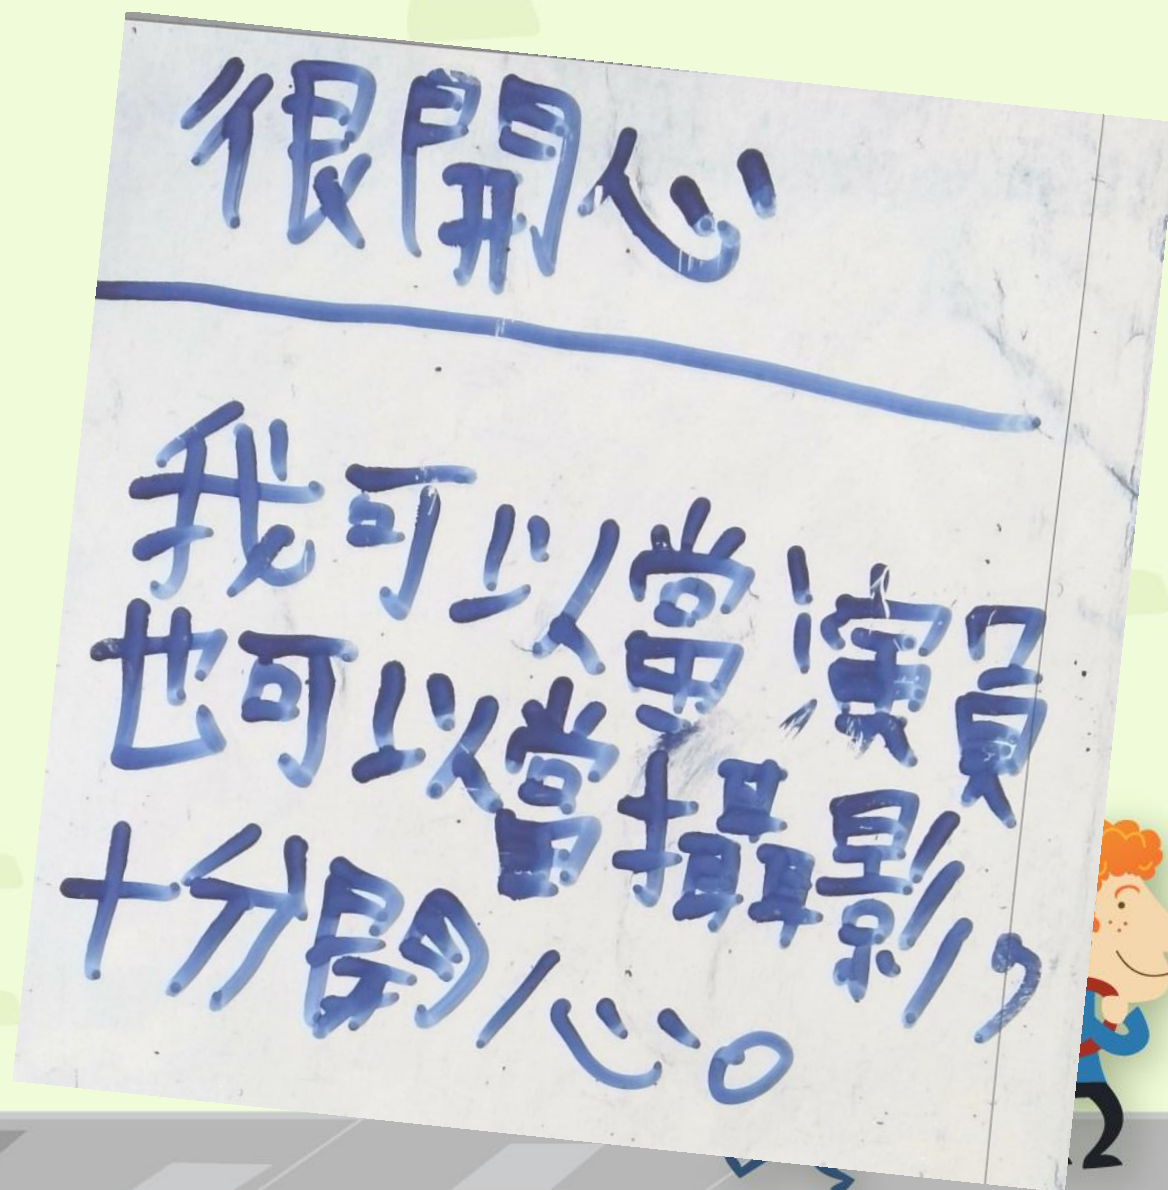 很開心
我可以當演員
也可以當攝影，
十分開心。